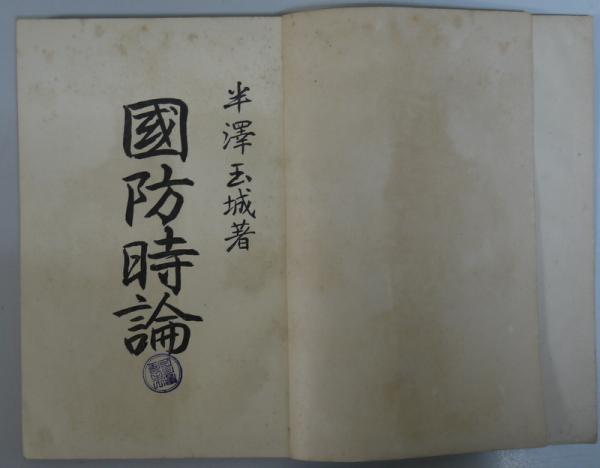 半澤玉城著
國防時論